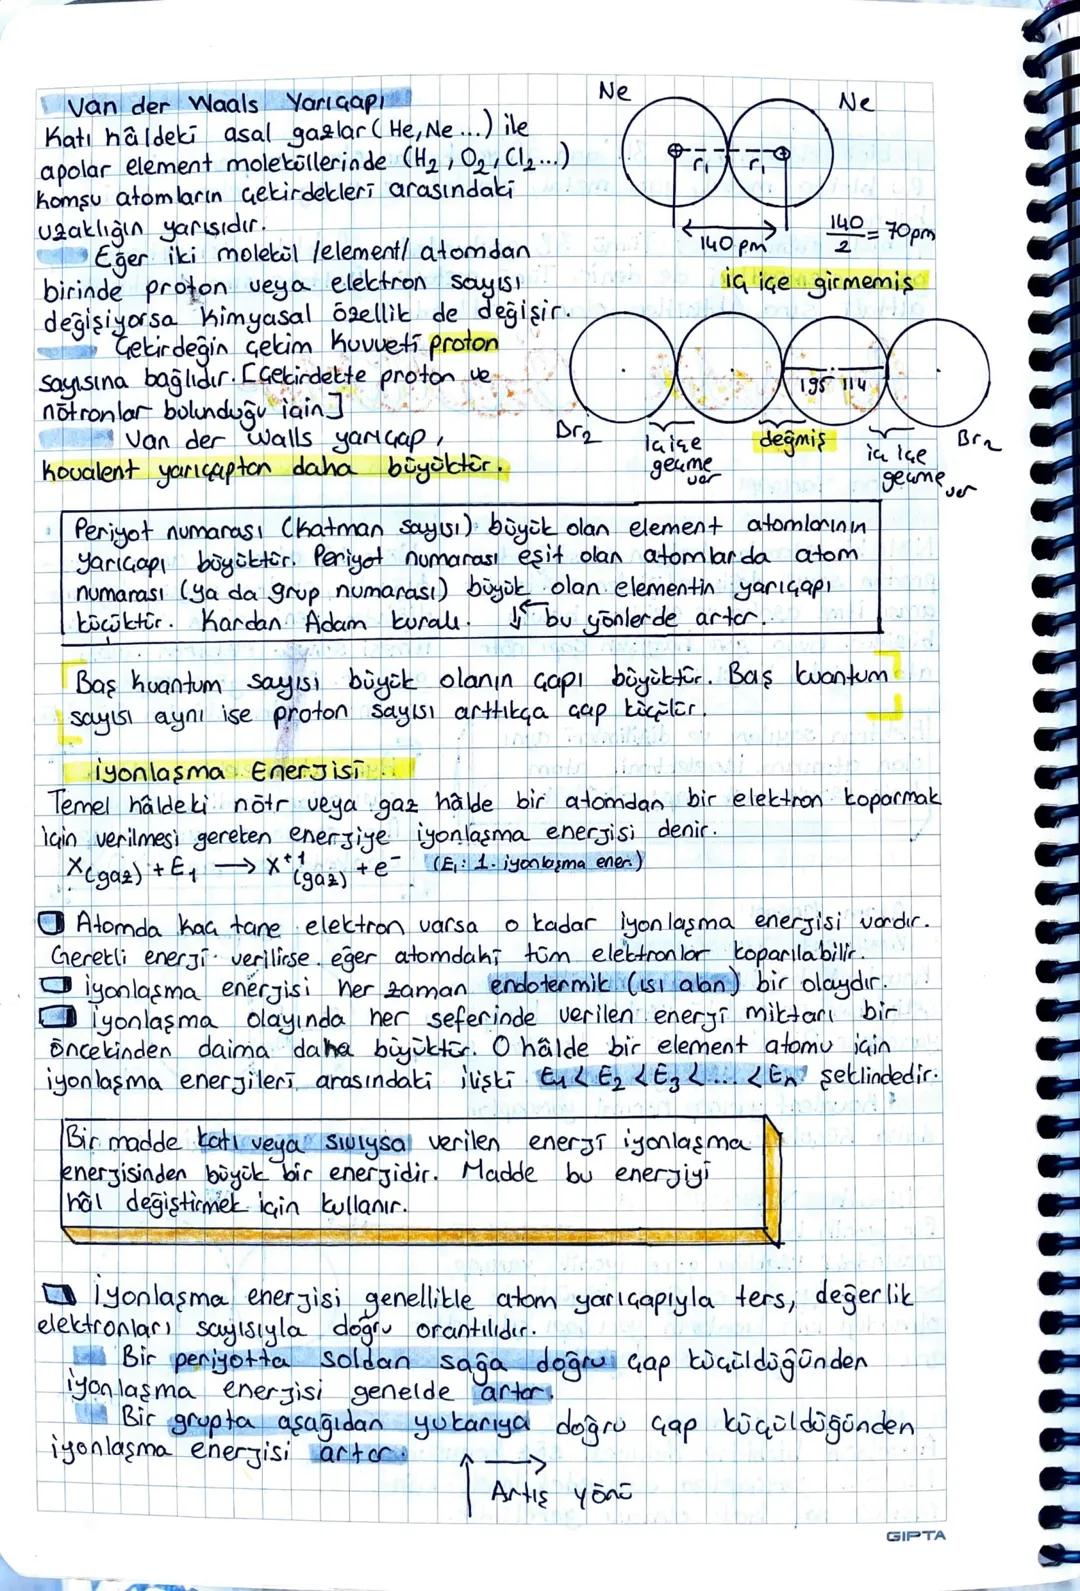 Van der Waals Yarıçapı
Katı hâldeki asal gazlar (He, Ne ...) ile
apolar element moleküllerinde (H₂, O₂, Cl₂...)
komşu atomların çekirdekleri arasındaki
uzaklığın yarısıdır.
Ne
Ne
r₁
r₁
140 pm
140/2 = 70pm
iç içe girmemiş
Eğer iki molekül /element/ atomdan
birinde proton veya elektron sayısı
değişiyorsa kimyasal özellik de değişir.
Çekirdeğin çekim kuvveti proton
sayısına bağlıdır. [Çekirdekte proton ve
nötronlar bulunduğu için]
Van der Walls yarıçap,
kovalent yarıçaptan daha büyüktür.
195 114
Br₂
iç içe geçme var
değmiş
iç içe geçme var
Br₂
Periyot numarası (katman sayısı) büyük olan element atomlarının
yarıçapı büyüktür. Periyot numarası eşit olan atomlarda atom
numarası (ya da grup numarası) büyük olan elementin yarıçapı
küçüktür. Kardan Adam kuralı. ↓← bu yönlerde artar.
Baş kuantum sayısı büyük olanın çapı büyüktür. Baş kuantum
sayısı aynı ise proton sayısı arttıkça çap küçülür.
iyonlaşma Enerjisi
Temel hâldeki nötr veya gaz hâlde bir atomdan bir elektron koparmak
için verilmesi gereken enerjiye iyonlaşma enerjisi denir.
X(gaz) + E₁ → X⁺¹(gaz) + e⁻ (E₁: 1. iyonlaşma ener.)
Atomda kaç tane elektron varsa o kadar iyonlaşma enerjisi vardır.
Gerekli enerji verilirse eğer atomdaki tüm elektronlar koparılabilir.
iyonlaşma enerjisi her zaman endotermik (ısı alan) bir olaydır.
iyonlaşma olayında her seferinde verilen enerji miktarı bir
öncekinden daima daha büyüktür. O hâlde bir element atomu için
iyonlaşma enerjileri arasındaki ilişki E₁ < E₂ < E₃ < ... < Eₙ şeklindedir.
Bir madde katı veya sıvıysa verilen enerji iyonlaşma
enerjisinden büyük bir enerjidir. Madde bu enerjiyi
hâl değiştirmek için kullanır.
iyonlaşma enerjisi genellikle atom yarıçapıyla ters, değerlik
elektronları sayısıyla doğru orantılıdır.
Bir periyotta soldan sağa doğru çap küçüldüğünden
iyonlaşma enerjisi genelde artar.
Bir grupta aşağıdan yukarıya doğru çap küçüldüğünden
iyonlaşma enerjisi artar.
↑ → Artış yönü
GIPTA